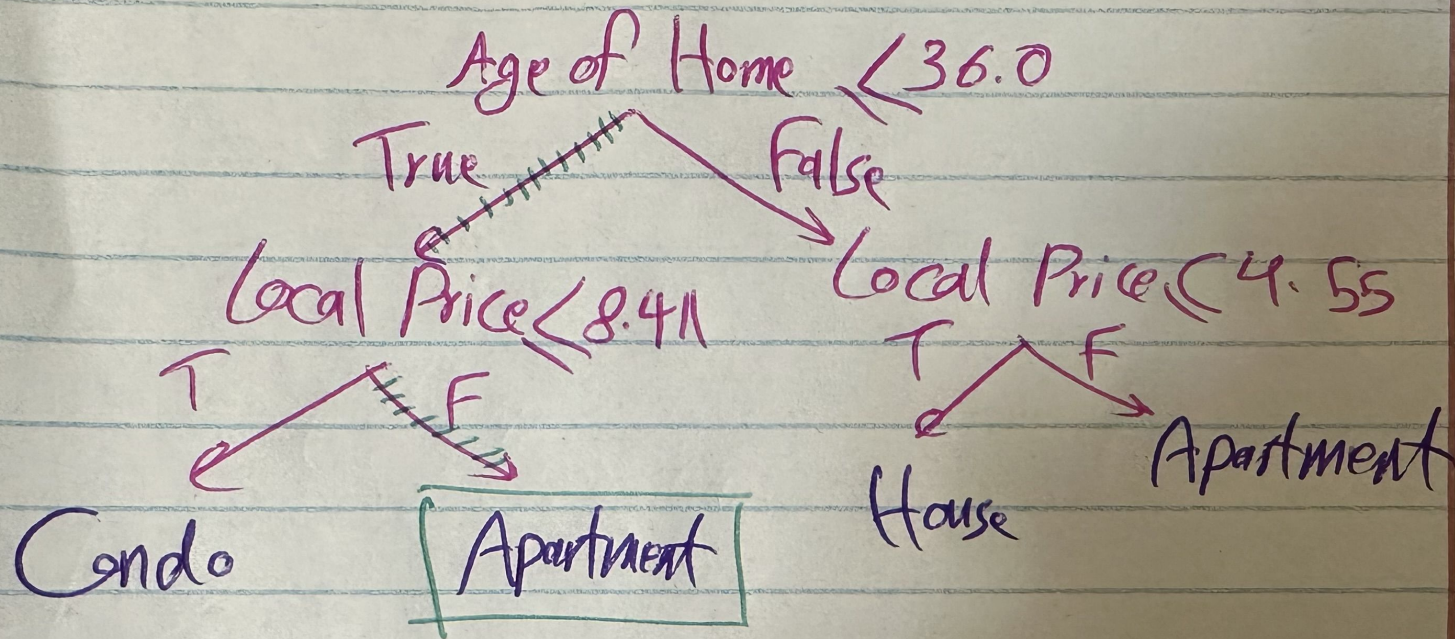 Age of Home ≤ 36.0
True False
Local Price ≤ 8.411 Local Price ≤ 4.55
T F T F
Condo Apartment House Apartment